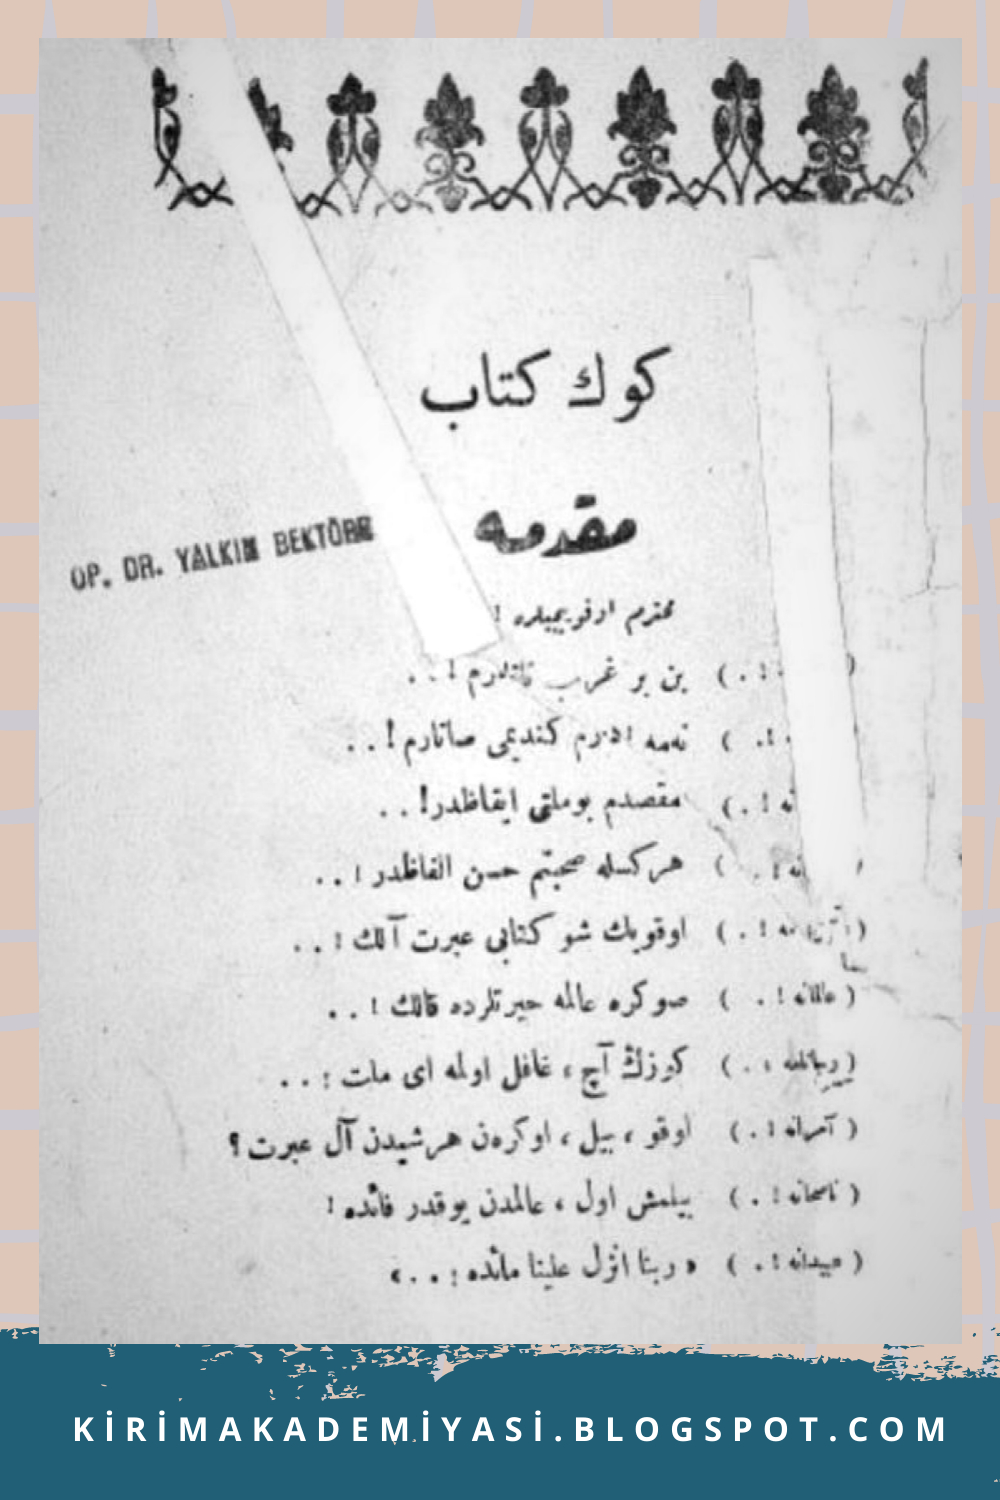 كوك كتاب
مقدمه
OP. DR. YALKIN BEKTÖRE
محترم اوقويجيلره !
بن بر غريب ! . .
نه‌مه كنديمى صاتارم ! . .
مقصدم بوملتى ايقاظدر! . .
هركسله صحبتم حسن الفاظدر ! . .
اوقويك شو كتابى عبرت آلك ! . .
( عالمانه ! . ) صوكره عالمه حيرتلرده قالك ! . .
كوزڭ آچ ، غافل اولمه اى ملت ! . .
( آمرانه ! . ) اوقو ، بيل ، اوكره‌ن هرشيدن آل عبرت ؟
( ناصحانه ! . ) بيلمش اول ، عالمدن يوقدر فائده !
« ربنا انزل علينا مائده ! . . »
KİRİMAKADEMİYASİ.BLOGSPOT.COM